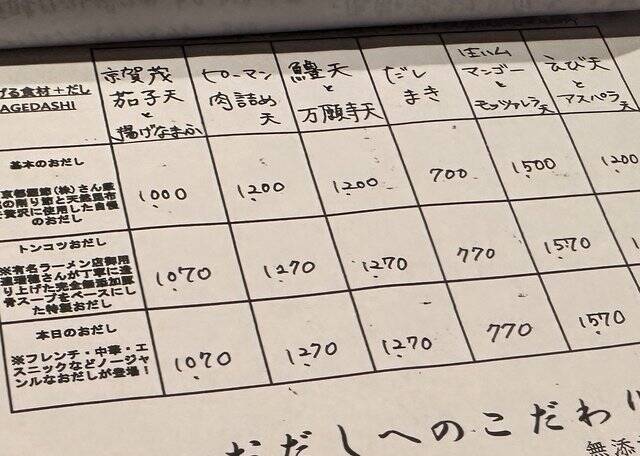 げる食材+だし
AGEDASHI
京賀茂
茄子天
と
揚げなまふ
ピーマン
肉詰め
天
鱧天
と
万願寺天
だし
まき
生ハム
マンゴー
と
モッツァレラ天
えび天
と
アスパラ天
基本のおだし
の削り節と天然昆布
贅沢に使用した自慢
のおだし
1000
1200
1200
700
1500
1200
トンコツおだし
※有名ラーメン店御用
さんが丁寧に造
り上げた完全無添加豚
骨スープをベースにし
た特製おだし
1070
1270
1270
770
1570
本日のおだし
※フレンチ・中華・エ
スニックなどノージャ
ンルなおだしが登場!
1070
1270
1270
770
1570
おだしへのこだわり
無添